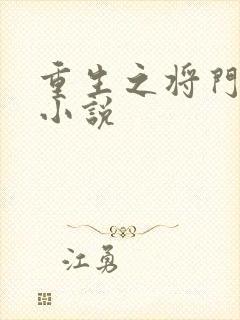 重生之将門
小說
江勇